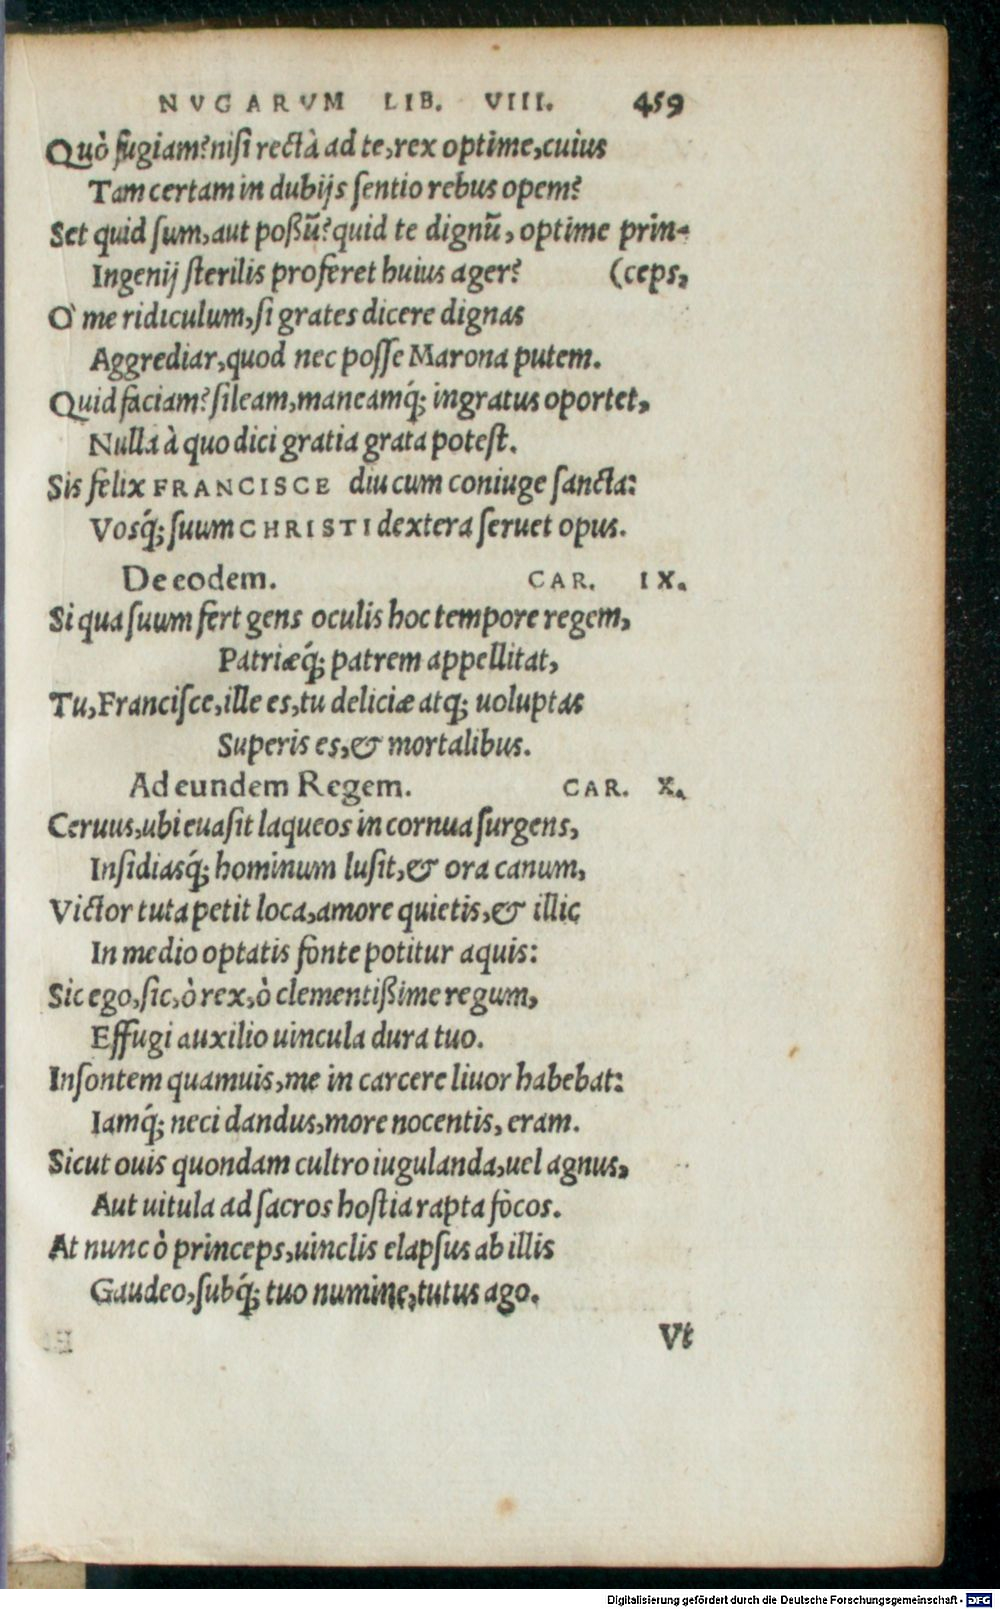 NVGARVM LIB. VIII. 459
Quò fugiam? nisi rectà ad te, rex optime, cuius
Tam certam in dubijs sentio rebus opem?
Set quid sum, aut poßũ? quid te dignũ, optime prin-
Ingenij sterilis proferet huius ager? (ceps,
O' me ridiculum, si grates dicere dignas
Aggrediar, quod nec posse Marona putem.
Quid faciam? sileam, maneamq́; ingratus oportet,
Nulla à quo dici gratia grata potest.
Sis felix FRANCISCE diu cum coniuge sancta:
Vosq́; suum CHRISTI dextera seruet opus.
De eodem. CAR. IX.
Si qua suum fert gens oculis hoc tempore regem,
Patriæq́; patrem appellitat,
Tu, Francisce, ille es, tu deliciæ atq; uoluptas
Superis es, & mortalibus.
Ad eundem Regem. CAR. X.
Ceruus, ubi euasit laqueos in cornua surgens,
Insidiasq́; hominum lusit, & ora canum,
Victor tuta petit loca, amore quietis, & illic
In medio optatis fonte potitur aquis:
Sic ego, sic, ò rex, ò clementißime regum,
Effugi auxilio uincula dura tuo.
Insontem quamuis, me in carcere liuor habebat:
Iamq́; neci dandus, more nocentis, eram.
Sicut ouis quondam cultro iugulanda, uel agnus,
Aut uitula ad sacros hostia rapta fòcos.
At nunc ò princeps, uinclis elapsus ab illis
Gaudeo, subq́; tuo numine, tutus ago.
Vt
Digitalisierung gefördert durch die Deutsche Forschungsgemeinschaft - DFG